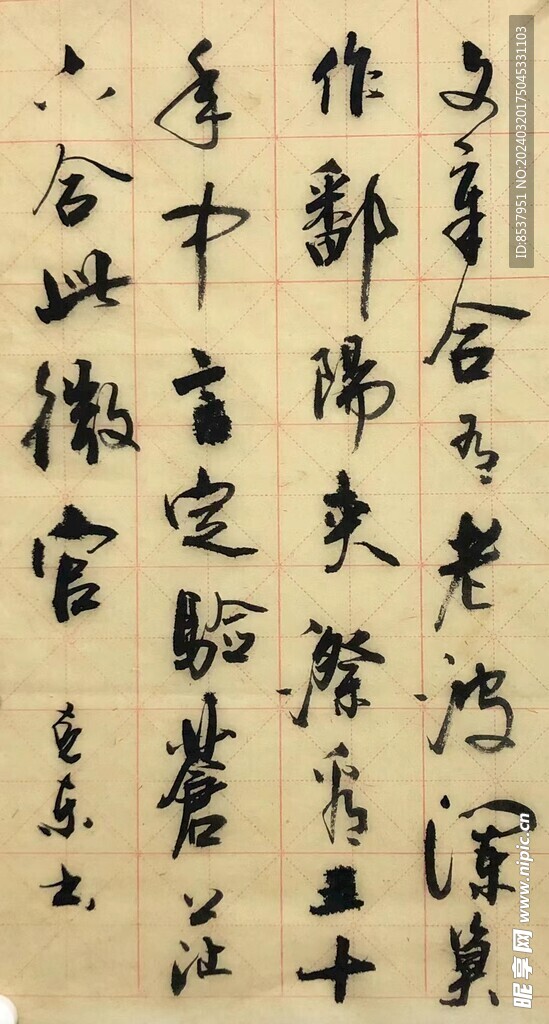 文章合有老波澜莫
作鄱陽夹漈看五十
年中言定验蒼茫
六合此微官
克东书
ID:8537951 NO:20240320175045331103
昵享网 www.nipic.cn